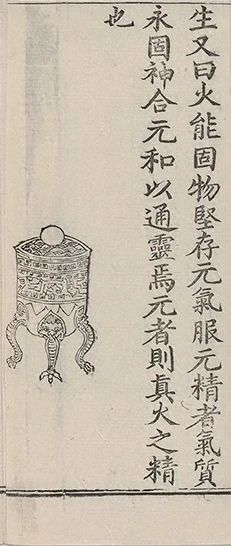 生又曰火能固物堅存元氣服元精者氣質
永固神合元和以通靈焉元者則真火之精
也